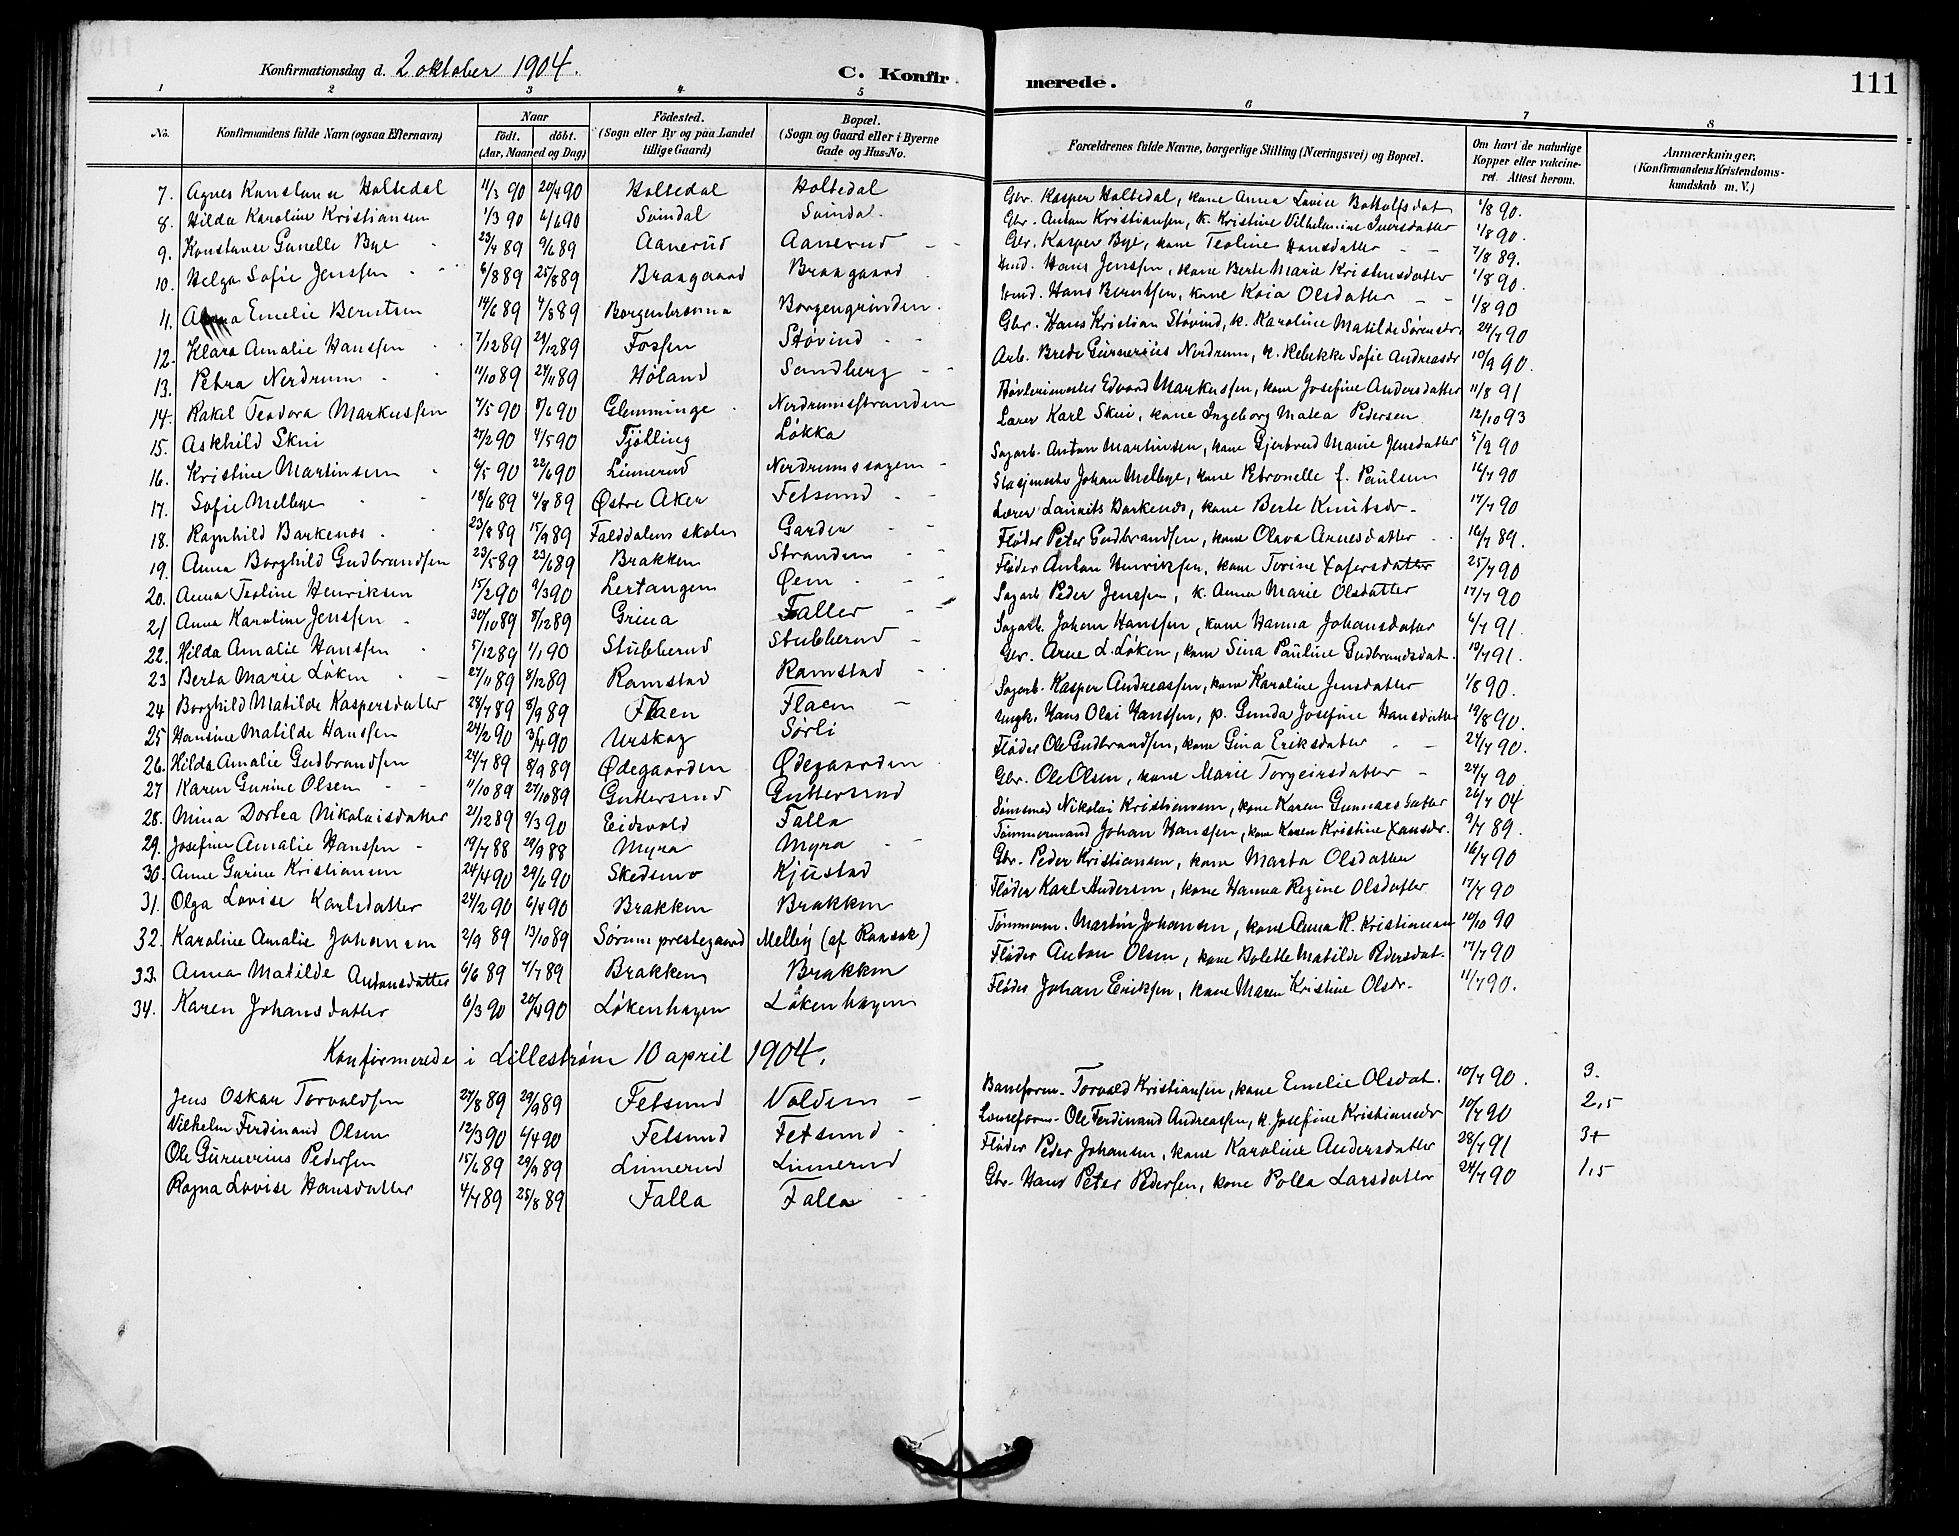 Konfirmationsdag d. 2 oktober 1904. C. Konfirmerede. 111
1 2 3 4 5 6 7 8
No. Konfirmandens fulde Navn (ogsaa Efternavn) Naar Født. døbt. (Aar, Maaned og Dag) Fødested. (Sogn eller By og paa Landet tillige Gaard) Bopæl. (Sogn og Gaard eller i Byerne Gade og Hus-No. Forældrenes fulde Navne, borgerlige Stilling (Næringsvei) og Bopæl. Om havt de naturlige Kopper eller vakcineret. Attest herom. Anmærkninger. (Konfirmandens Kristendomskundskab m. V.)
7. Agnes Konstanse Holtedal 11/3 90 20/4 90 Holtedal Holtedal Gbr. Kasper Holtedal, kone Anna Lovise Bottolfsdat 1/8 90.
8. Hilda Karoline Kristiansen 1/3 90 6/6 90 Svindal Svindal. Gbr. Anton Kristiansen, k. Kristine Vilhelmine Iversdatter 1/8 90.
9. Konstanse Gunelle Bye 23/4 89 9/6 89 Aanerud Aanerud Gbr. Kasper Bye, kone Teoline Hansdatter 7/8 89.
10. Helga Sofie Jenssen 6/8 89 25/8 89 Braagaard Braagaard Hans Jenssen, kone Berte Marie Kristensdatter 1/8 90.
11. Anna Emelie Berntsen 14/6 89 4/8 89 Borgenbraaten Borgengrinden. Hans Berntsen, kone Kaia Olsdatter 1/8 90
12. Klara Amalie Hanssen 7/12 89 29/12 89 Fossen Støvind Gbr. Hans Kristian Støvind, k. Karoline Matilde Sørensdr. 24/7 90
13. Petra Nerdrum 11/10 89 24/11 89 Høland Sandberg Arb. Brede Gurnerius Nerdrum, k. Rebekke Sofie Andreasdr 10/9 90.
14. Rakel Teodora Markussen 7/5 90 8/6 90 Glemminge Nerdrumsstranden Høvlerimester Edvard Markussen, kone Josefine Andersdatter 11/8 91
15. Askhild Skui 27/2 90 4/5 90 Tjølling Løkka Lærer Karl Skui, kone Ingeborg Matea Pedersen 12/10 93
16. Kristine Martinsen 6/5 90 22/6 90 Linnerud Nerdrumssagen Sagarb. Anton Martinsen, kone Gjertrud Marie Jensdatter 5/9 90
17. Sofie Melbye 18/6 89 4/8 89 Østre Aker Fetsund Stasjmester Johan Melbye, kone Petronelle f. Paulsen 16/7 90
18. Ragnhild Barkenæs 23/8 89 15/9 89 Falddalens skole Garder Lærer Laurits Barkenæs, kone Berte Knutsdr. 17/7 90
19. Anna Borghild Gudbrandsen 23/5 89 23/6 89 Brakken Stranden Fløder Peter Gudbrandsen, kone Olava Arnesdatter 16/7 89.
20. Anna Teoline Henriksen 15/2 90 9/3 90 Lertangen Øien Fløder Anton Henriksen, kone Torine Xofersdatter 25/7 90
21 Anna Karoline Jenssen 30/10 89 8/12 89 Grina Faller Sagarb Peder Jenssen, k. Anna Marie Olsdatter 17/7 90
22. Hilda Amalie Hanssen 5/12 89 1/1 90 Stubberud Stubberud Sagarb. Johan Hanssen, kone Hanna Johansdatter 6/7 91.
23 Berta Marie Løken 27/11 89 8/12 89 Ramstad Ramstad Gbr. Arne L. Løken, kone Sina Pauline Gudbrandsdat. 19/7 91.
24 Borghild Matilde Kaspersdatter 28/7 89 8/9 89 Flaen Flaen Sagarb. Kasper Andreassen, kone Karoline Jensdatter 1/8 90.
25 Hansine Matilde Hanssen 24/2 90 3/4 90 Urskog Sørli Ungk. Hans Olai Hanssen, p. Gunda Josefine Hansdatter 19/8 90.
26. Hilda Amalie Gudbrandsen 24/7 89 8/9 89 Ødegaarden Ødegaarden Fløder Ole Gudbrandsen, kone Gina Eriksdatter 24/7 90.
27 Karen Gurine Olsen 11/10 89 27/10 89 Guttersrud Guttersrud Gbr. Ole Olsen, kone Marie Torgeirsdatter 24/7 90
28. Mina Dortea Nikolaisdatter 21/12 89 9/3 90 Eidsvold Falla Nikolai Kristiansen, kone Karen Gunnarsdatter 26/7 04
29. Josefine Amalie Hanssen 19/7 88 29/9 88 Myra Myra Tømmermand Johan Hanssen, kone Karen Kristine Xansdr. 9/7 89.
30. Anne Gurine Kristiansen 24/4 90 29/6 90 Skedsmo Kjustad Gbr. Peder Kristiansen, kone Marta Olsdatter 16/7 90
31. Olga Lovise Karlsdatter 24/2 90 6/4 90 Brakken Brakken Fløder Karl Andersen, kone Hanna Regine Olsdatter 17/7 90
32. Karoline Amalie Johansen 2/9 89 13/10 89 Sørum prestegaard Melby (af Rånåk) Tømmerm. Martin Johansen, kone Anna K. Kristiansen 10/10 90
33. Anna Matilde Antonsdatter 6/6 89 7/7 89 Brakken Brakken Fløder Anton Olsen, kone Bolette Matilde Pedersdat. 17/7 90
34. Karen Johansdatter 6/3 90 20/4 90 Løkenhagen Løkenhagen Fløder Johan Eriksen, kone Maren Kristine Olsdr. 11/7 90.
Konfirmerede i Lillestrøm 10 april 1904.
Jens Oskar Torvaldsen 27/8 89 29/9 89 Fetsund Volden Baneform. Torvald Kristiansen, kone Emelie Olsdat. 10/7 90. 3.
Vilhelm Ferdinand Olsen 12/3 90 6/4 90 Fetsund Fetsund Ole Ferdinand Andreassen, k. Josefine Kristiansdr 10/7 90 2,5
Ole Gurnerius Pedersen 15/6 89 29/9 89 Linnerud Linnerud Fløder Peder Johansen, kone Karoline Andersdatter 28/7 91 3+
Ragna Lovise Hansdatter 4/7 89 25/8 89 Falla Falla Gbr. Hans Peter Pedersen, kone Polla Larsdatter 24/7 90 1,5